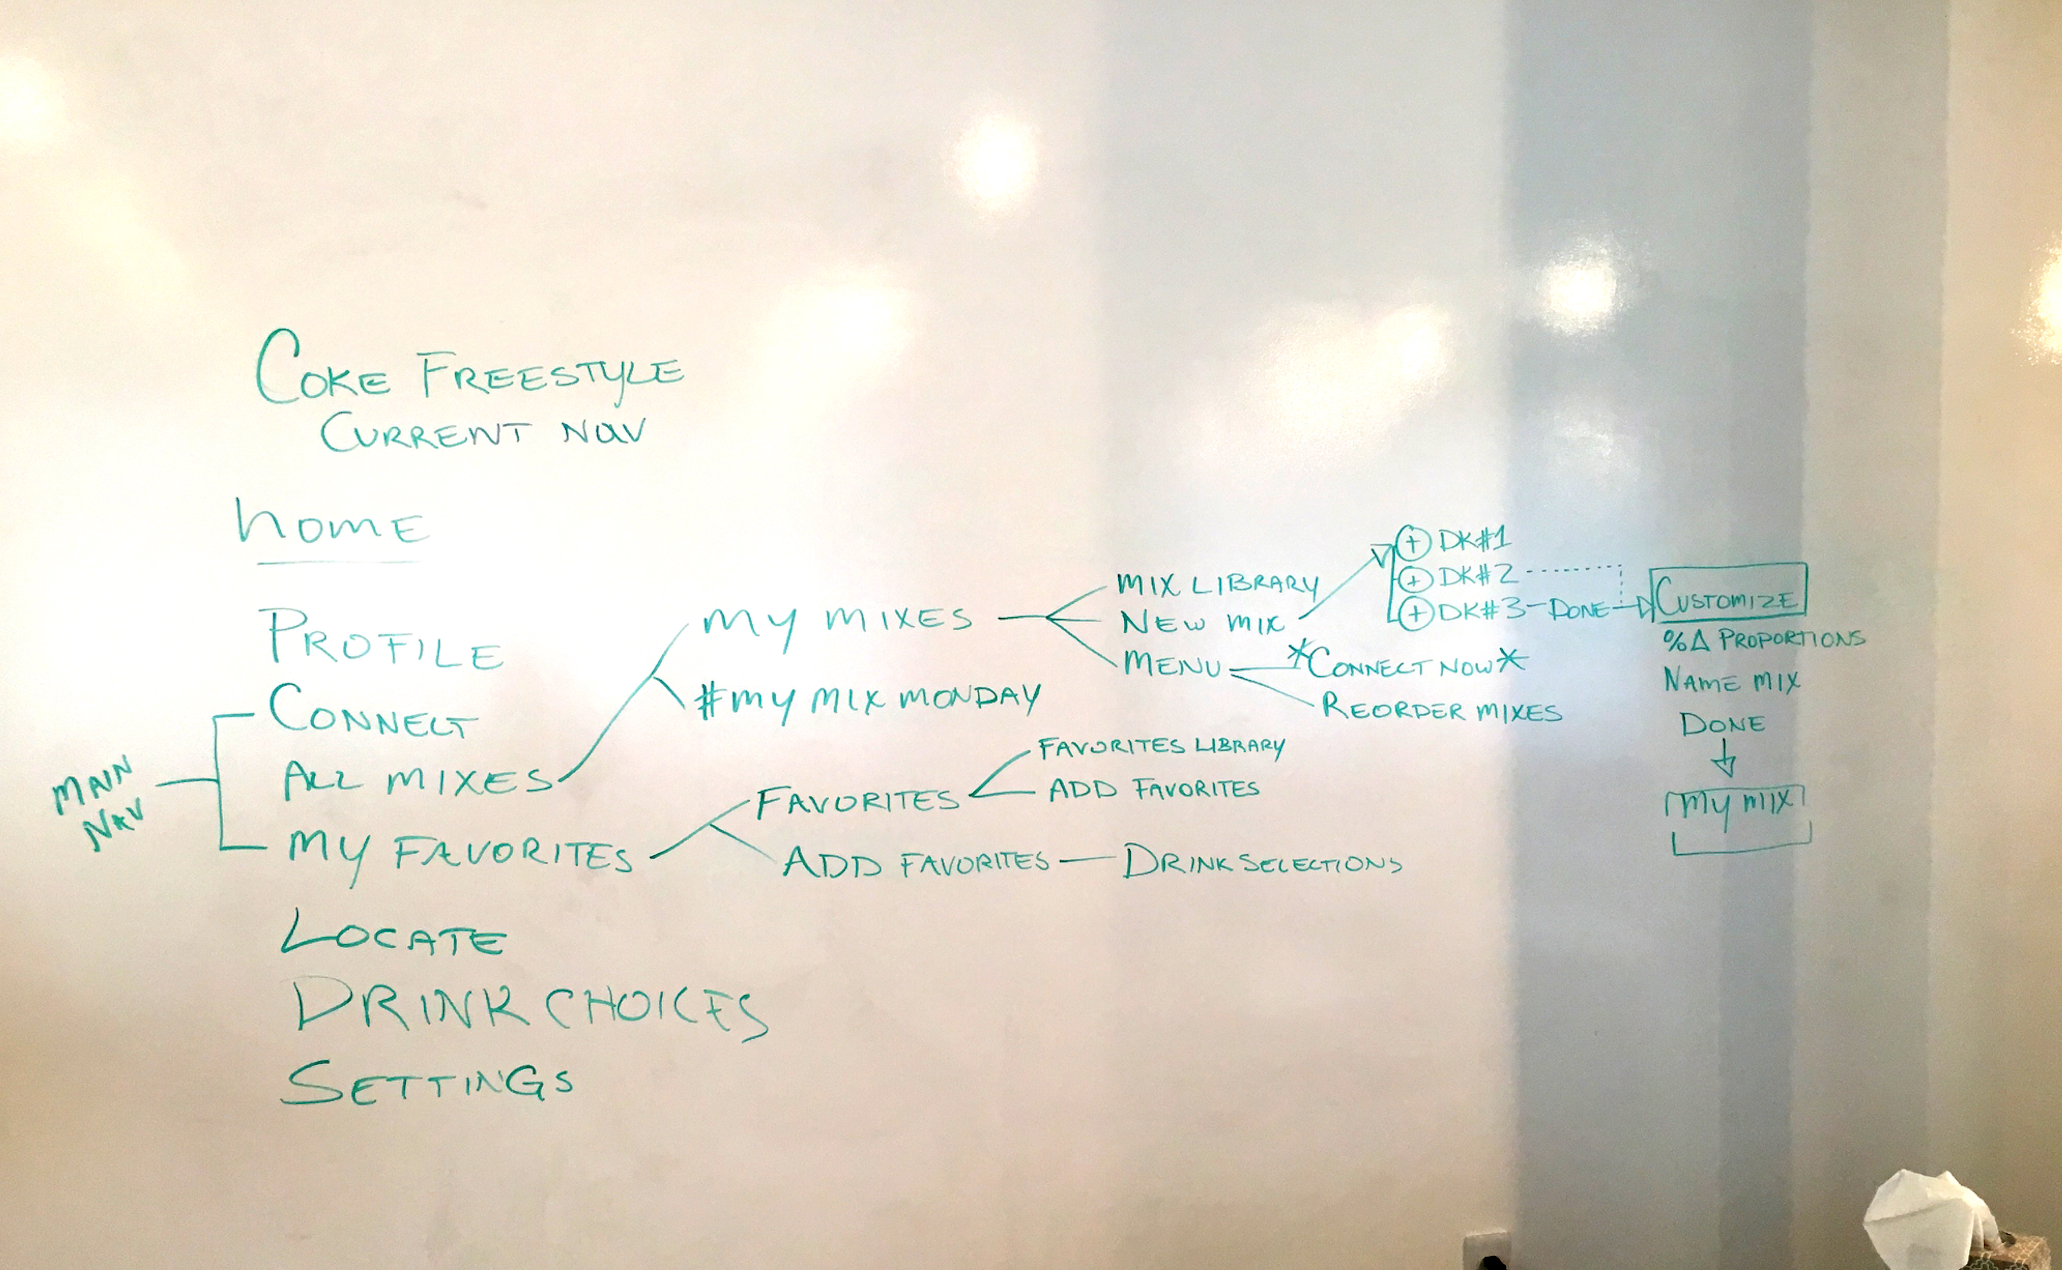 COKE FREESTYLE
CURRENT NAV
home
PROFILE
CONNECT
ALL MIXES
MY FAVORITES
LOCATE
DRINK CHOICES
SETTINGS
MAIN
NAV
MY MIXES
#MY MIX MONDAY
MIX LIBRARY
NEW MIX
MENU
+ DK#1
+ DK#2
+ DK#3 - DONE
*CONNECT NOW*
REORDER MIXES
CUSTOMIZE
%Δ PROPORTIONS
NAME MIX
DONE
MY MIX
FAVORITES
FAVORITES LIBRARY
ADD FAVORITES
ADD FAVORITES — DRINK SELECTIONS